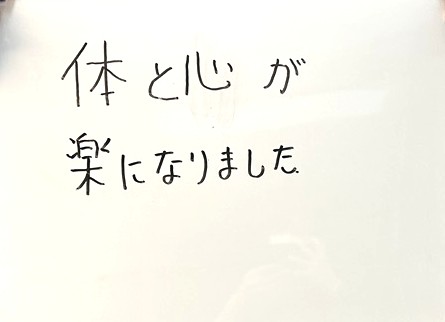 体と心が
楽になりました